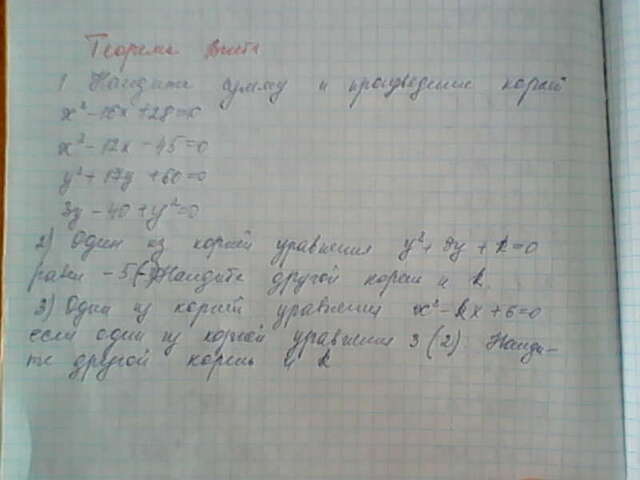 Теорема Виета
1 Найдите сумму и произведение корней
x²-16x+28=0
x²-12x-45=0
y²+17y+60=0
3y-40+y²=0
2) Один из корней уравнения y²+8y+k=0
равен -5 Найдите другой корень и k
3) Один из корней уравнения x²-kx+6=0
если один из корней уравнения 3 (2). Найди-
те другой корень и k